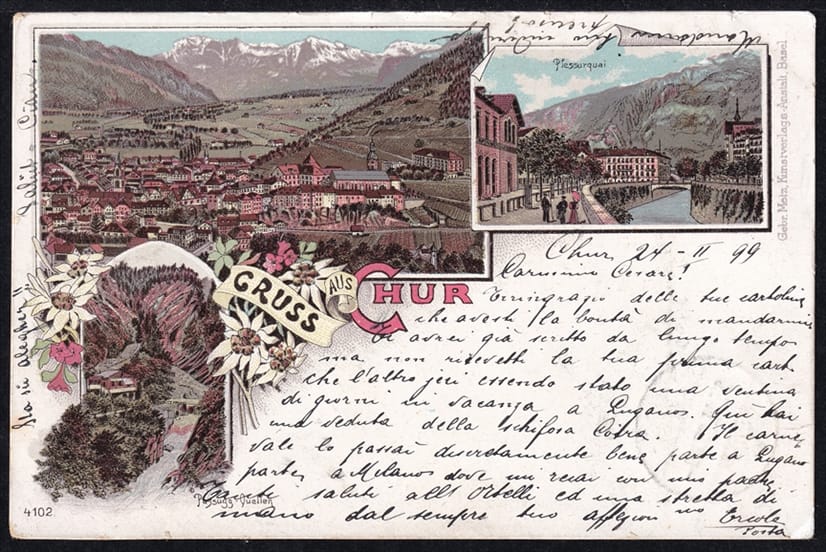 Plessurquai
Gebr. Metz, Kunstverlags-Anstalt, Basel
GRUSS
AUS
CHUR
Chur 24-II 99
Carissimo Cesare!
Ti ringrazio delle tue cartoline
che avesti la bontà di mandarmi
Ti avrei già scritto da lungo tempo
ma non ricevetti la tua prima cart.
che l'altro jeri essendo stato una ventina
di giorni in vacanza a Lugano. Qui hai
una veduta della schifosa Coira. Il carne
vale lo passai discretamente bene parte a Lugano
parte a Milano dove mi recai con mio padre
saluti all' Ortelli ed una stretta di
mano dal sempre tuo affezion mo Ercole
Posta
Passugg Quellen
4102
Salut - Ciau.
Sta sü alegher!!